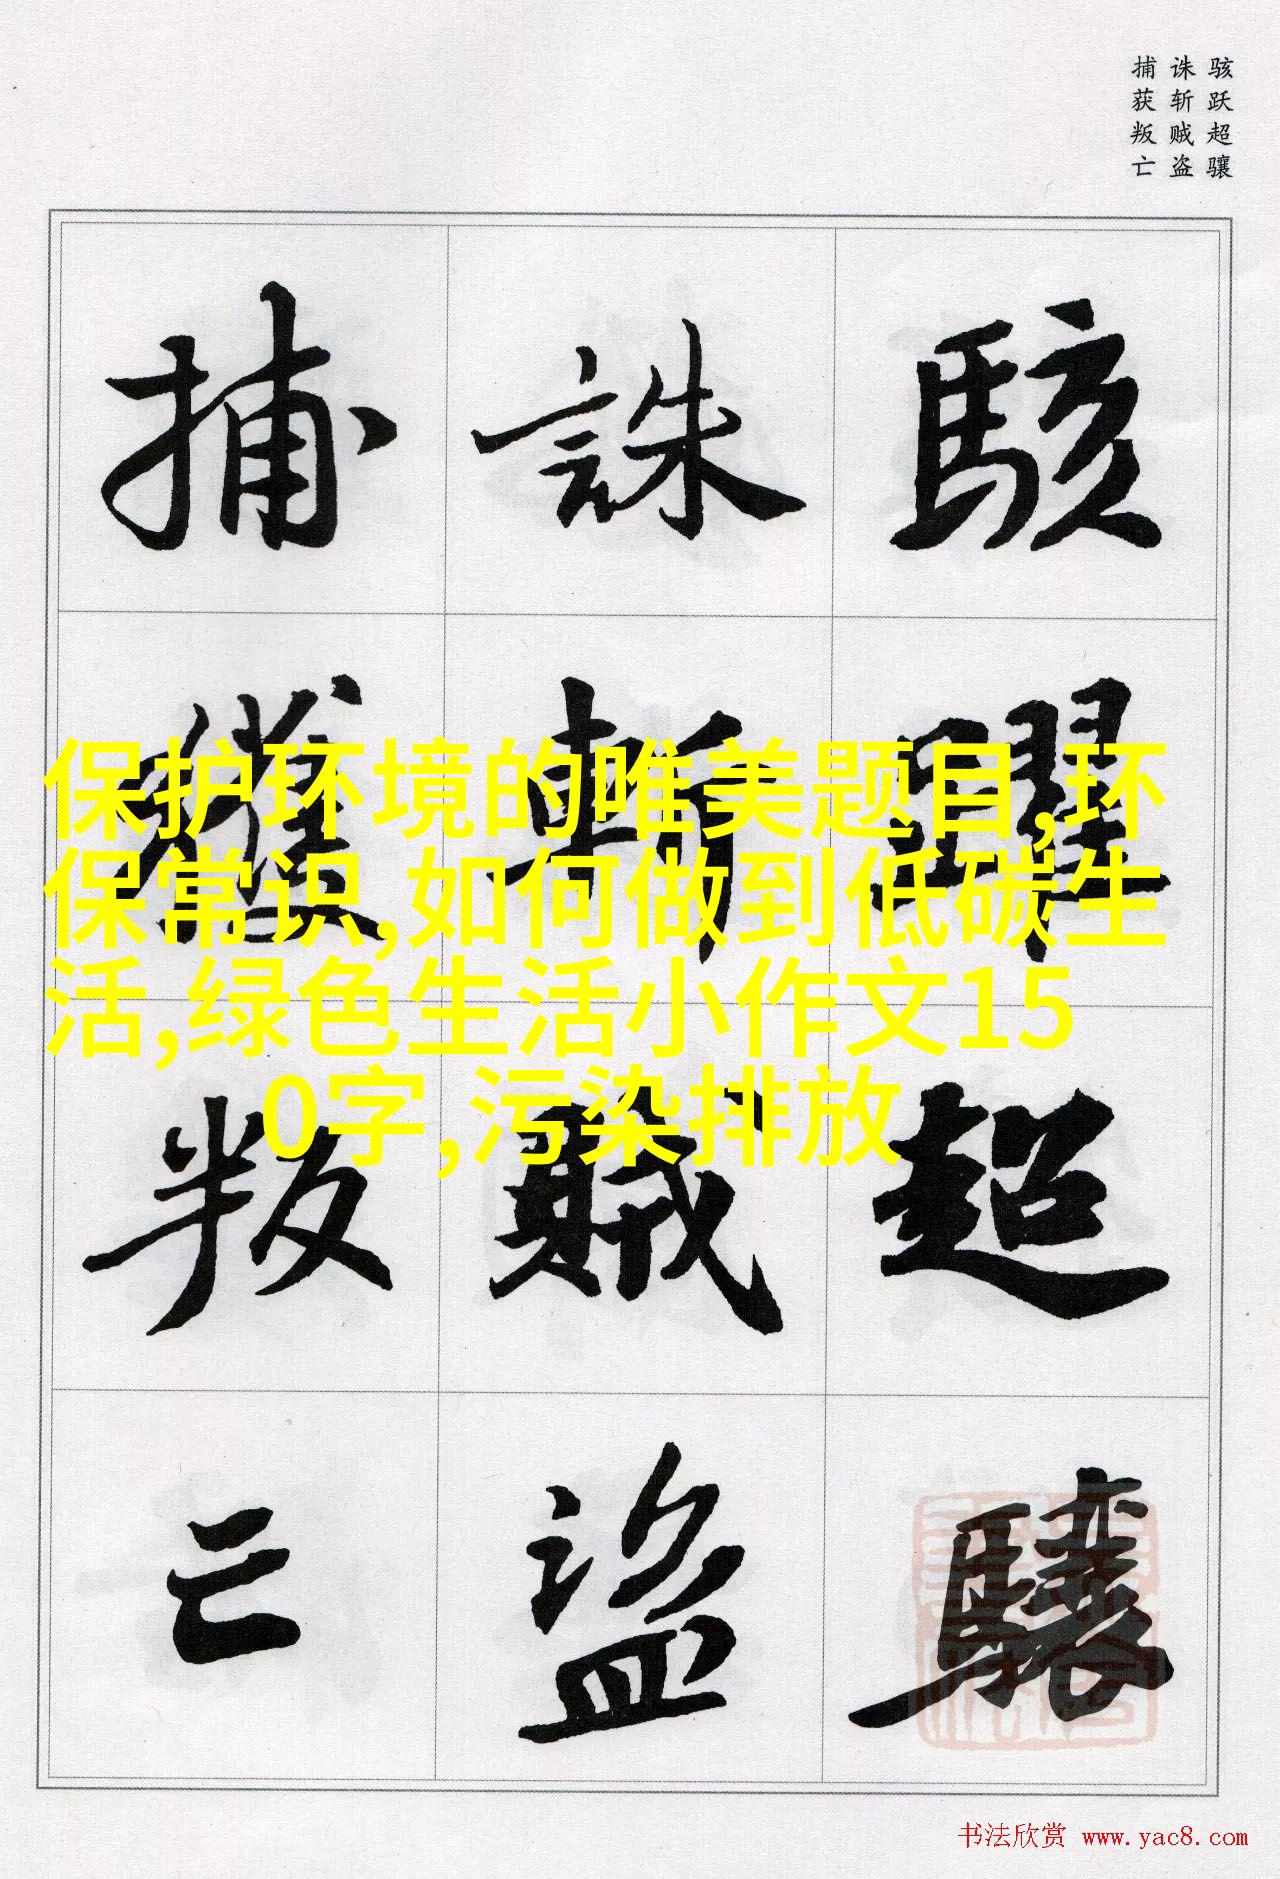 骇跃超骧
诛斩贼盗
捕获叛亡
駭躍超驤
誅斬賊盜
捕獲叛亡
保护环境的唯美题目,环
保常识,如何做到低碳生
活,绿色生活小作文15
0字,污染排放
书法欣赏 www.yac8.com